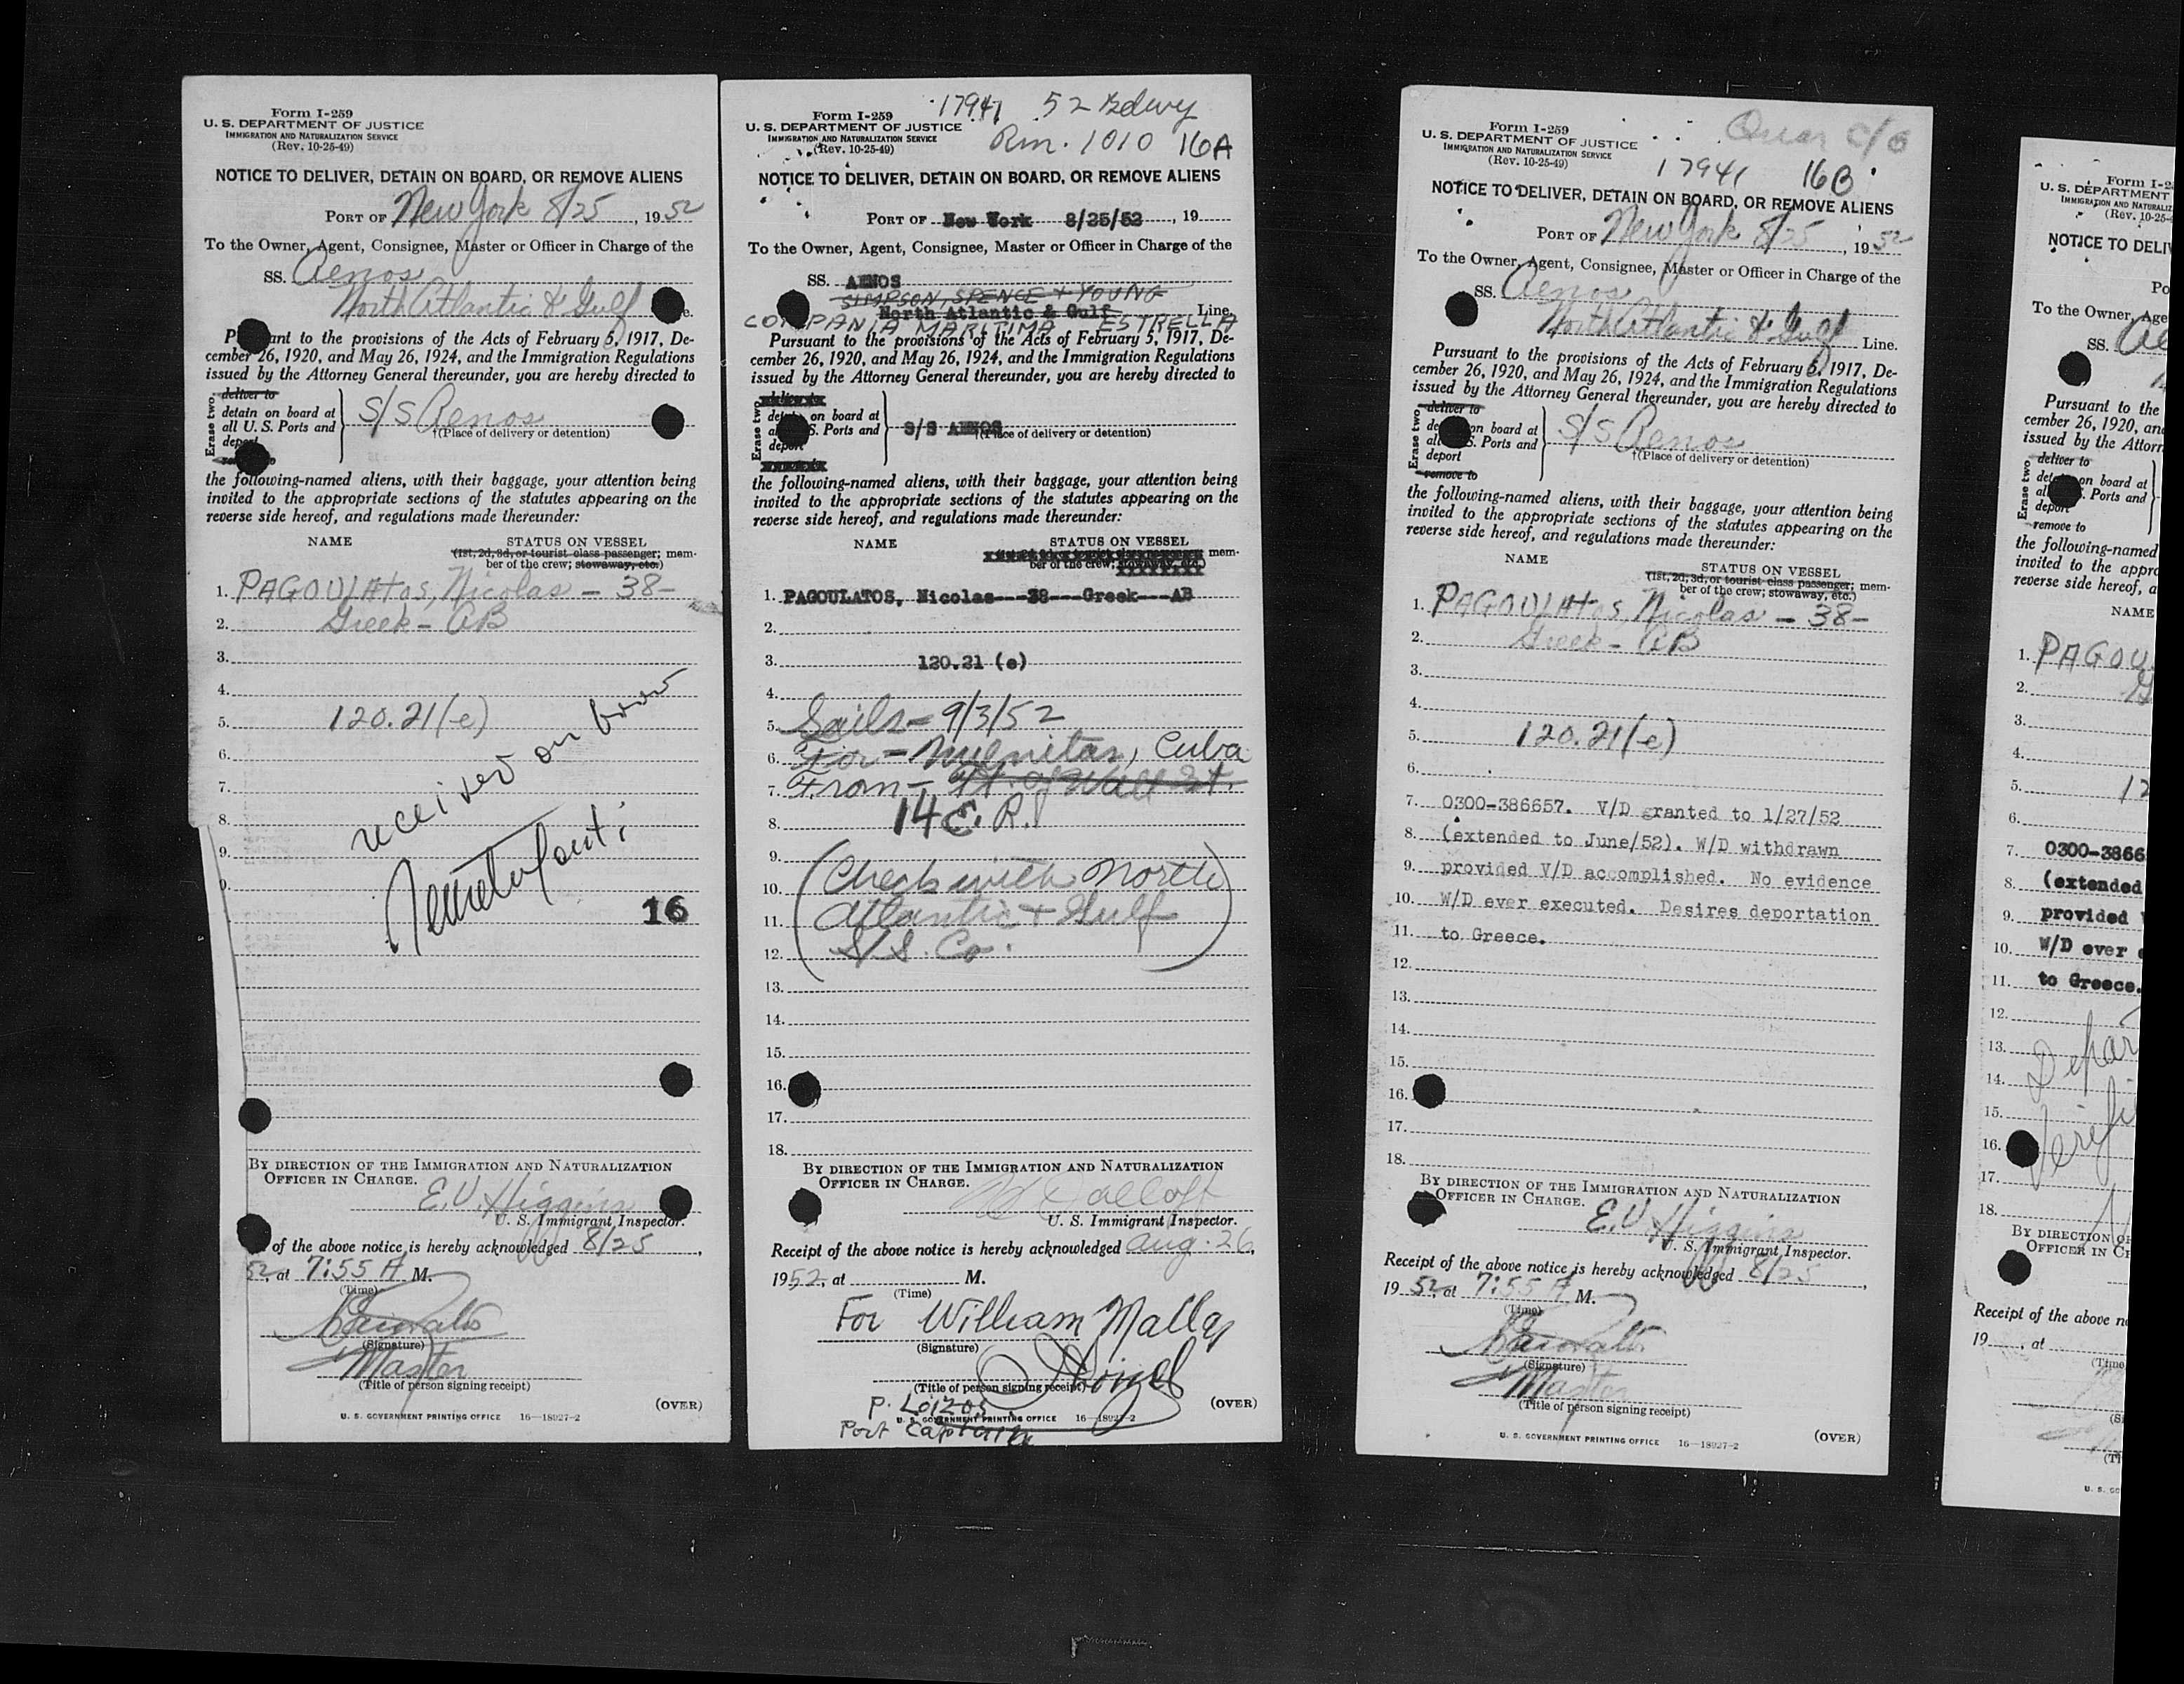 Form I-259
U. S. DEPARTMENT OF JUSTICE
IMMIGRATION AND NATURALIZATION SERVICE
(Rev. 10-25-49)
NOTICE TO DELIVER, DETAIN ON BOARD, OR REMOVE ALIENS
PORT OF New York 8/25, 1952
To the Owner, Agent, Consignee, Master or Officer in Charge of the
SS. Aenos
North Atlantic & Gulf
ant to the provisions of the Acts of February 5, 1917, De-
cember 26, 1920, and May 26, 1924, and the Immigration Regulations
issued by the Attorney General thereunder, you are hereby directed to
Erase two.
deliver to
detain on board at
all U. S. Ports and
deport
S/S Aenos
†(Place of delivery or detention)
the following-named aliens, with their baggage, your attention being
invited to the appropriate sections of the statutes appearing on the
reverse side hereof, and regulations made thereunder:
NAME STATUS ON VESSEL
(1st, 2d, 3d, or tourist class passenger; mem-
ber of the crew; stowaway, etc.)
1. PAGOULAtos, Nicolas - 38-
2. Greek - AB
3.
4.
5. 120.21(e)
6.
7.
8.
9.
received on
16
BY DIRECTION OF THE IMMIGRATION AND NATURALIZATION
OFFICER IN CHARGE.
E.V. Higgins
U. S. Immigrant Inspector.
of the above notice is hereby acknowledged 8/25,
52, at 7:55 A M.
(Time)
(Signature)
Master
(Title of person signing receipt)
(OVER)
U. S. GOVERNMENT PRINTING OFFICE 16—18927-2
17941 52 Bdwy
Form I-259
U. S. DEPARTMENT OF JUSTICE
IMMIGRATION AND NATURALIZATION SERVICE
(Rev. 10-25-49)
Rm. 1010 16A
NOTICE TO DELIVER, DETAIN ON BOARD, OR REMOVE ALIENS
PORT OF New Work 8/25/52, 19
To the Owner, Agent, Consignee, Master or Officer in Charge of the
SS. AENOS
SIMPSON, SPENCE + YOUNG
North Atlantic & Gulf Line.
COMPANIA MARITIMA ESTRELLA
Pursuant to the provisions of the Acts of February 5, 1917, De-
cember 26, 1920, and May 26, 1924, and the Immigration Regulations
issued by the Attorney General thereunder, you are hereby directed to
Erase two
on board at
S. Ports and
deport
S/S AENOS
†(Place of delivery or detention)
the following-named aliens, with their baggage, your attention being
invited to the appropriate sections of the statutes appearing on the
reverse side hereof, and regulations made thereunder:
NAME STATUS ON VESSEL
mem-
ber of the crew; stowaway, etc.)
1. PAGOULATOS, Nicolas---38---Greek---AB
2.
3. 120.21 (e)
4.
5. Sails - 9/3/52
6. For - Nuenitas, Cuba
7. From - Ft. of Wall St.
8. 14 E. R.
9. (Check with North
10. Atlantic + Gulf
11. S/S. Co.)
12.
13.
14.
15.
16.
17.
18.
BY DIRECTION OF THE IMMIGRATION AND NATURALIZATION
OFFICER IN CHARGE.
U. S. Immigrant Inspector.
Receipt of the above notice is hereby acknowledged Aug. 26,
1952, at M.
(Time)
For William Mallas
(Signature)
(Title of person signing receipt)
P. Loizos
(OVER)
U. S. GOVERNMENT PRINTING OFFICE 16—18927-2
Port Captain
Form I-259
U. S. DEPARTMENT OF JUSTICE
IMMIGRATION AND NATURALIZATION SERVICE
(Rev. 10-25-49)
17941 16B
NOTICE TO DELIVER, DETAIN ON BOARD, OR REMOVE ALIENS
PORT OF New York 8/25, 1952
To the Owner, Agent, Consignee, Master or Officer in Charge of the
SS. Aenos
North Atlantic & Gulf Line.
Pursuant to the provisions of the Acts of February 5, 1917, De-
cember 26, 1920, and May 26, 1924, and the Immigration Regulations
issued by the Attorney General thereunder, you are hereby directed to
Erase two
deliver to
on board at
all S. Ports and
deport
remove to
S/S Aenos
†(Place of delivery or detention)
the following-named aliens, with their baggage, your attention being
invited to the appropriate sections of the statutes appearing on the
reverse side hereof, and regulations made thereunder:
NAME STATUS ON VESSEL
(1st, 2d, 3d, or tourist class passenger; mem-
ber of the crew; stowaway, etc.)
1. PAGOULAtos, Nicolas - 38-
2. Greek - AB
3.
4.
5. 120.21(e)
6.
7. 0300-386657. V/D granted to 1/27/52
8. (extended to June/52). W/D withdrawn
9. provided V/D accomplished. No evidence
10. W/D ever executed. Desires deportation
11. to Greece.
12.
13.
14.
15.
16.
17.
18.
BY DIRECTION OF THE IMMIGRATION AND NATURALIZATION
OFFICER IN CHARGE.
E.V. Higgins
U. S. Immigrant Inspector.
Receipt of the above notice is hereby acknowledged 8/25,
1952, at 7:55 A M.
(Time)
(Signature)
Master
(Title of person signing receipt)
(OVER)
U. S. GOVERNMENT PRINTING OFFICE 16—18927-2
Form I-2
U. S. DEPARTMENT
IMMIGRATION AND NATURALIZ
(Rev. 10-25-4
NOTICE TO DELIV
Po
To the Owner, Age
SS. Ae
Pursuant to the
cember 26, 1920, an
issued by the Attor
Erase two
deliver to
on board at
Ports and
deport
remove to
the following-named
invited to the appro
reverse side hereof, a
NAME
1. PAGOU
2.
3.
4.
5. 12
6.
7. 0300-3866
8. (extended
9. provided
10. W/D ever
11. to Greece.
12.
13. Depar
14.
15. Verifi
16.
17.
18.
BY DIRECTION OF
OFFICER IN CH
Receipt of the above n
19 , at
(Time
(S
(Ti
U. S. GO